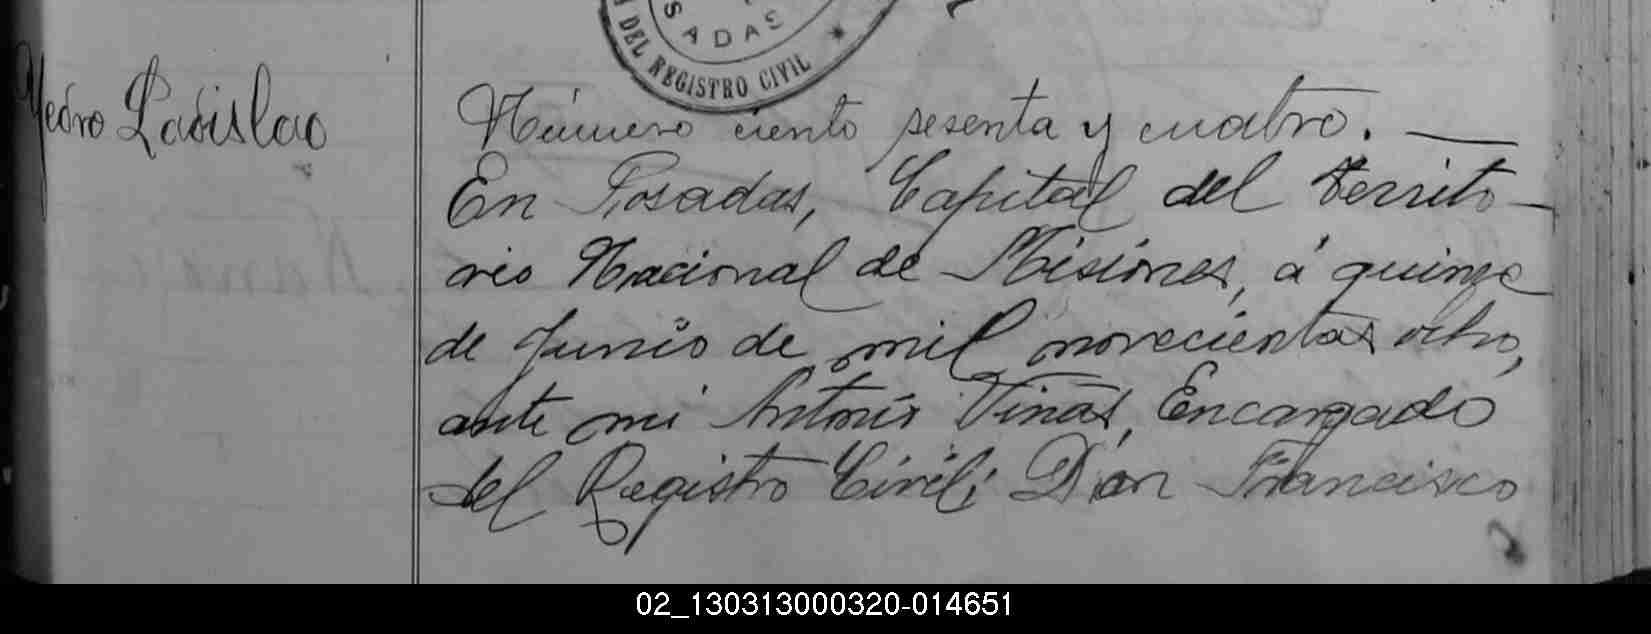 SADAS
DEL REGISTRO CIVIL *
Pedro Ladislao
Número ciento sesenta y cuatro. —
En Posadas, Capital del Territo-
rio Nacional de Misiones, á quince
de Junio de mil novecientos ocho,
ante mi Antonio Viñas, Encargado
del Registro Civil; Don Francisco
02_130313000320-014651